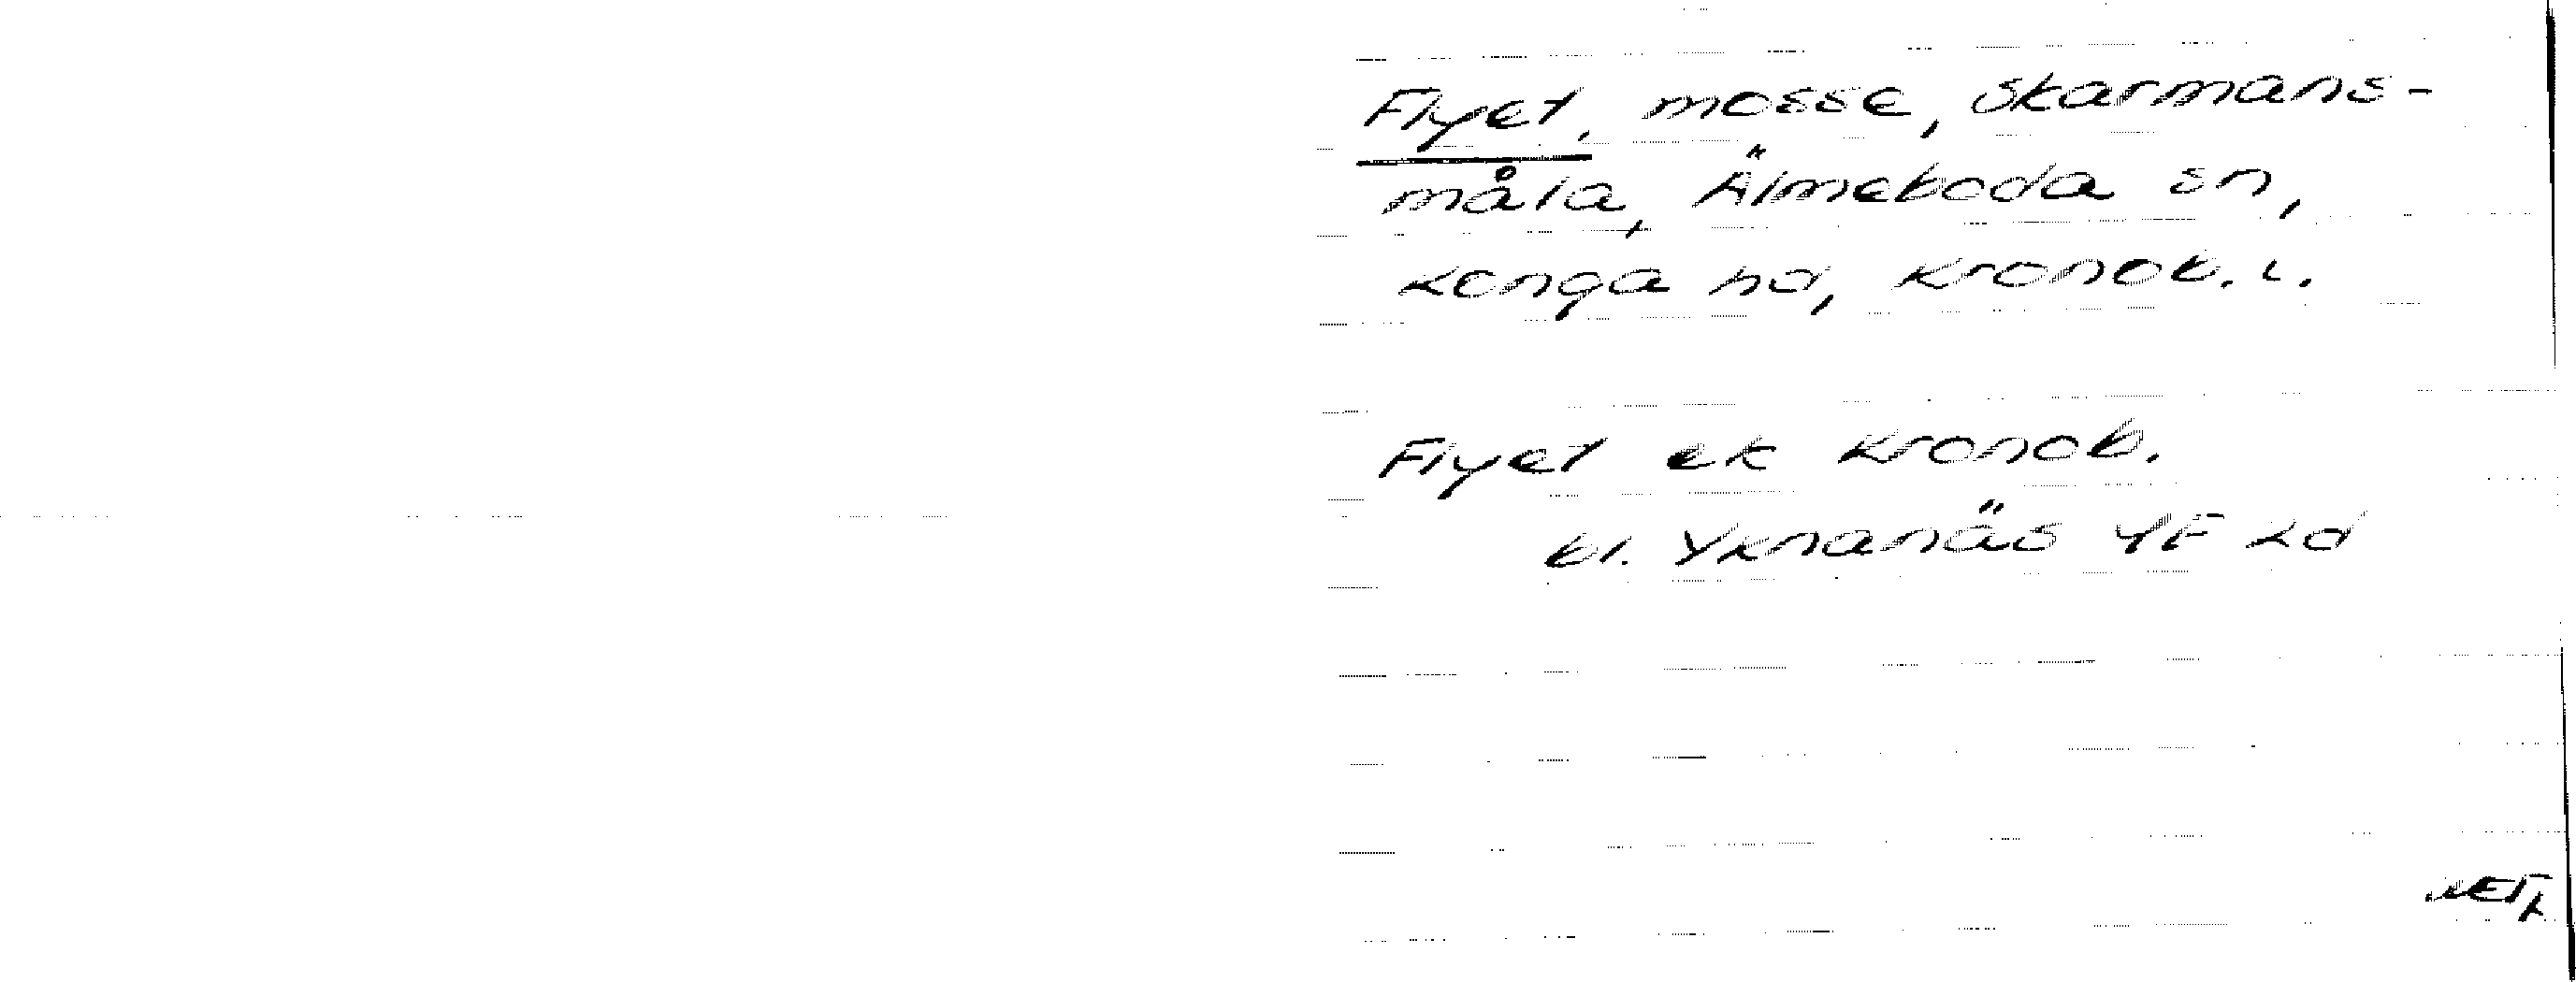 Flyet, mosse, Skarmans-
måla, Älmeboda sn,
Konga hd, Kronob. l.
Flyet ek Kronob.
bl. Yknanäs 4F 2d